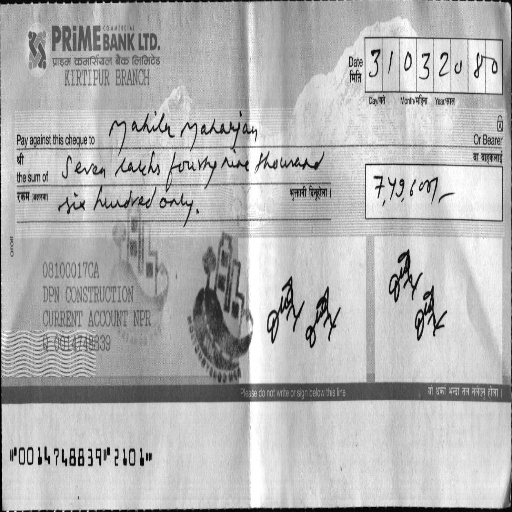 PRIME COMMERCIAL BANK LTD.
प्राइम कमर्सियल बैंक लिमिटेड
KIRTIPUR BRANCH
Date 31032080
मिति
Day/गते Month/महिना Year/साल
Pay against this cheque to Mahila Maharjan Or Bearer
श्री वा वाहकलाई
the sum of Seven lakhs fourty nine thousand
रकम (अक्षरमा) six hundred only. भुक्तानी दिनुहोला ।
7,49,600/-
08100017CA
DPN CONSTRUCTION
CURRENT ACCOUNT NPR
0014748839
Please do not write or sign below this line
⑈0014748839⑈2101⑈